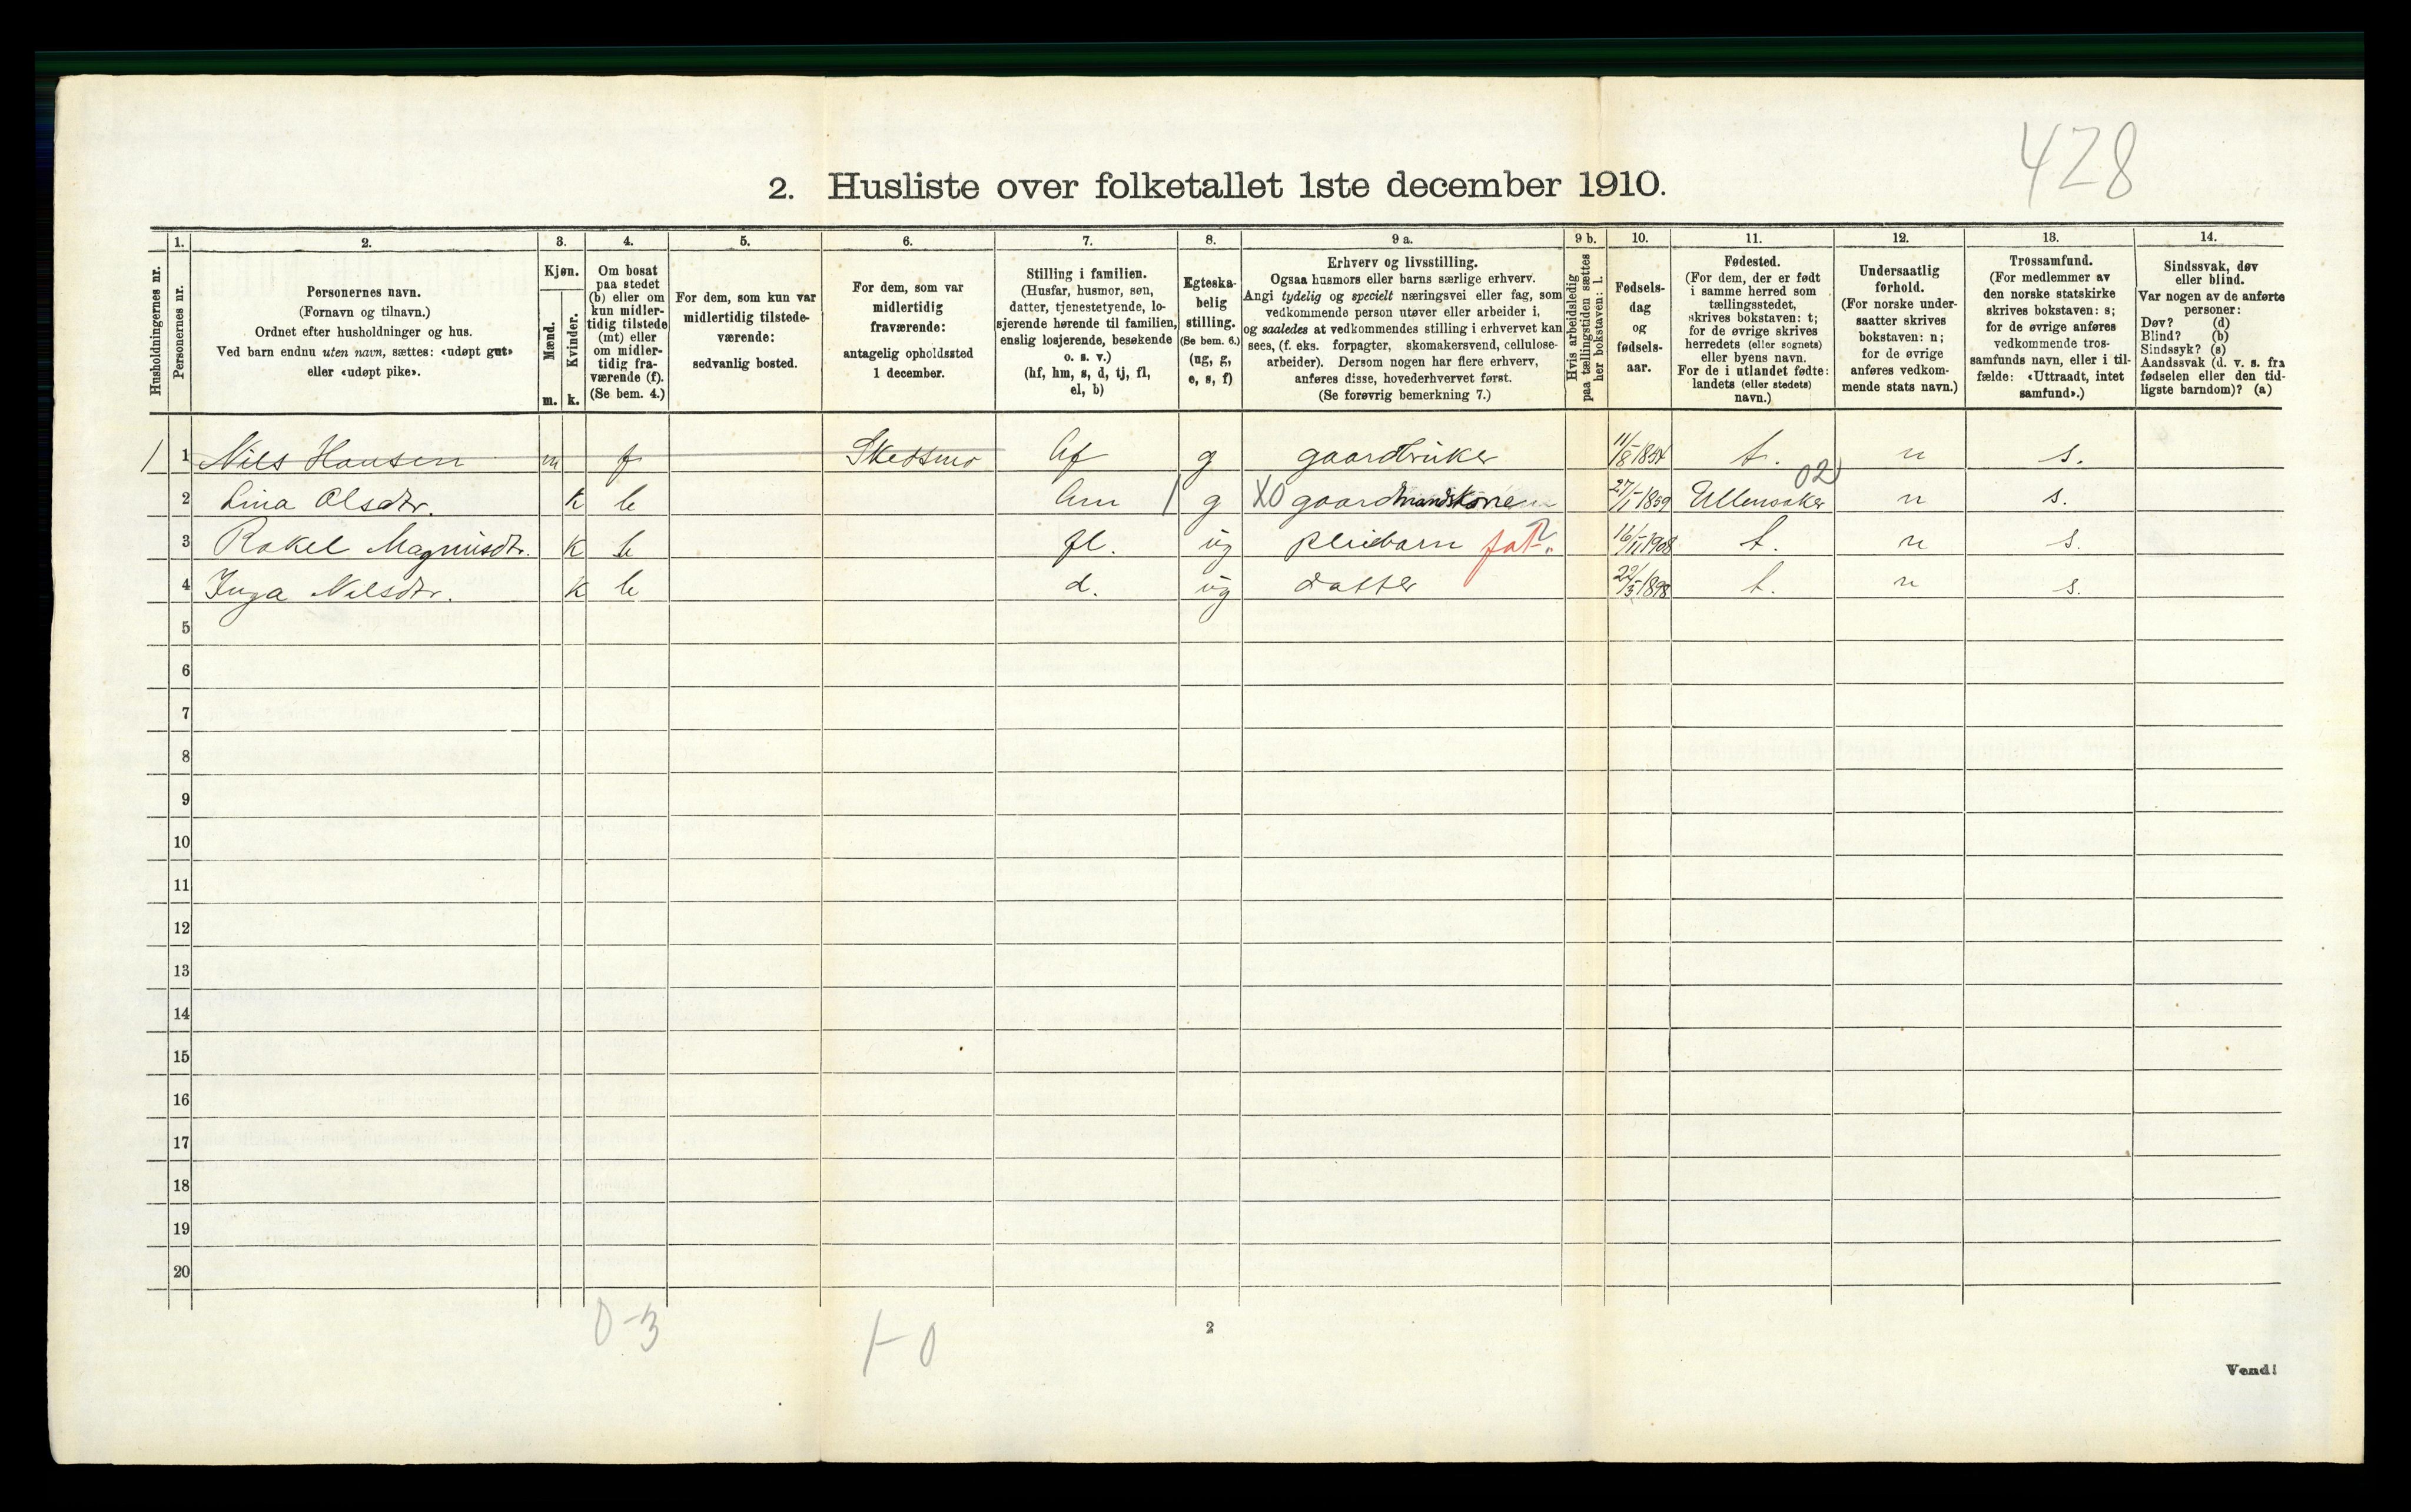 428
2. Husliste over folketallet 1ste december 1910.
Husholdningernes nr.
1.
Personernes nr.
2.
Personernes navn.
(Fornavn og tilnavn.)
Ordnet efter husholdninger og hus.
Ved barn endnu uten navn, sættes: «udøpt gut»
eller «udøpt pike».
3.
Kjøn.
Mænd.
Kvinder.
m.
k.
4.
Om bosat
paa stedet
(b) eller om
kun midler-
tidig tilstede
(mt) eller
om midler-
tidig fra-
værende (f).
(Se bem. 4.)
5.
For dem, som kun var
midlertidig tilstede-
værende:
sedvanlig bosted.
6.
For dem, som var
midlertidig
fraværende:
antagelig opholdssted
1 december.
7.
Stilling i familien.
(Husfar, husmor, søn,
datter, tjenestetyende, lo-
sjerende hørende til familien,
enslig losjerende, besøkende
o. s. v.)
(hf, hm, s, d, tj, fl,
el, b)
8.
Egteska-
belig
stilling.
(Se bem. 6.)
(ug, g,
e, s, f)
9 a.
Erhverv og livsstilling.
Ogsaa husmors eller barns særlige erhverv.
Angi tydelig og specielt næringsvei eller fag, som
vedkommende person utøver eller arbeider i,
og saaledes at vedkommendes stilling i erhvervet kan
sees, (f. eks. forpagter, skomakersvend, cellulose-
arbeider). Dersom nogen har flere erhverv,
anføres disse, hovederhvervet først.
(Se forøvrig bemerkning 7.)
9 b.
Hvis arbeidsledig
paa tællingstiden sættes
her bokstaven: l.
10.
Fødsels-
dag
og
fødsels-
aar.
11.
Fødested.
(For dem, der er født
i samme herred som
tællingsstedet,
skrives bokstaven: t;
for de øvrige skrives
herredets (eller sognets)
eller byens navn.
For de i utlandet fødte:
landets (eller stedets)
navn.)
12.
Undersaatlig
forhold.
(For norske under-
saatter skrives
bokstaven: n;
for de øvrige
anføres vedkom-
mende stats navn.)
13.
Trossamfund.
(For medlemmer av
den norske statskirke
skrives bokstaven: s;
for de øvrige anføres
vedkommende tros-
samfunds navn, eller i til-
fælde: «Uttraadt, intet
samfund».)
14.
Sindssvak, døv
eller blind.
Var nogen av de anførte
personer:
Døv? (d)
Blind? (b)
Sindssyk? (s)
Aandssvak (d. v. s. fra
fødselen eller den tid-
ligste barndom)? (a)
1 1 Nils Hansen m f Skedsmo hf g gaardbruker 11/8-1854 t. n s.
2 Lina Olsdtr. k b hm g X0 gaardmandskone 27/1-1859 Ullensaker 02 n s.
3 Rakel Magnusdtr. k b fl. ug pleiebarn fat. 16/11-1908 t. n s.
4 Inga Nilsdtr. k b d. ug datter 22/3-1898 t. n s.
5
6
7
8
9
10
11
12
13
14
15
16
17
18
19
20
0-3
1-0
2
Vend!